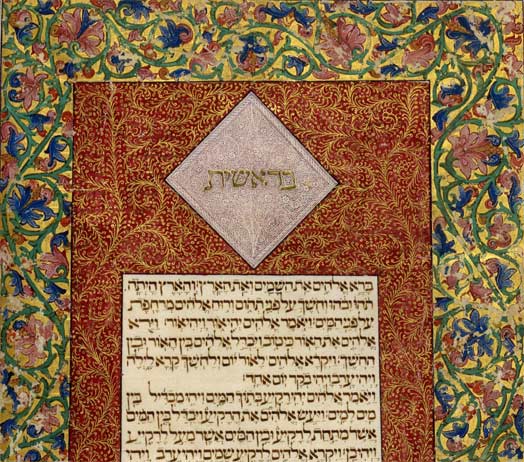 בראשית
ברא אלהים את השמים ואת הארץ והארץ היתה
תהו ובהו וחשך על פני תהום ורוח אלהים מרחפת
על פני המים ויאמר אלהים יהי אור ויהי אור וירא
אלהים את האור כי טוב ויבדל אלהים בין האור ובין
החשך ויקרא אלהים לאור יום ולחשך קרא לילה
ויהי ערב ויהי בקר יום אחד׃
ויאמר אלהים יהי רקיע בתוך המים ויהי מבדיל בין
מים למים ויעש אלהים את הרקיע ויבדל בין המים
אשר מתחת לרקיע ובין המים אשר מעל לרקיע
ויהי כן ויקרא אלהים לרקיע שמים ויהי ערב ויהי